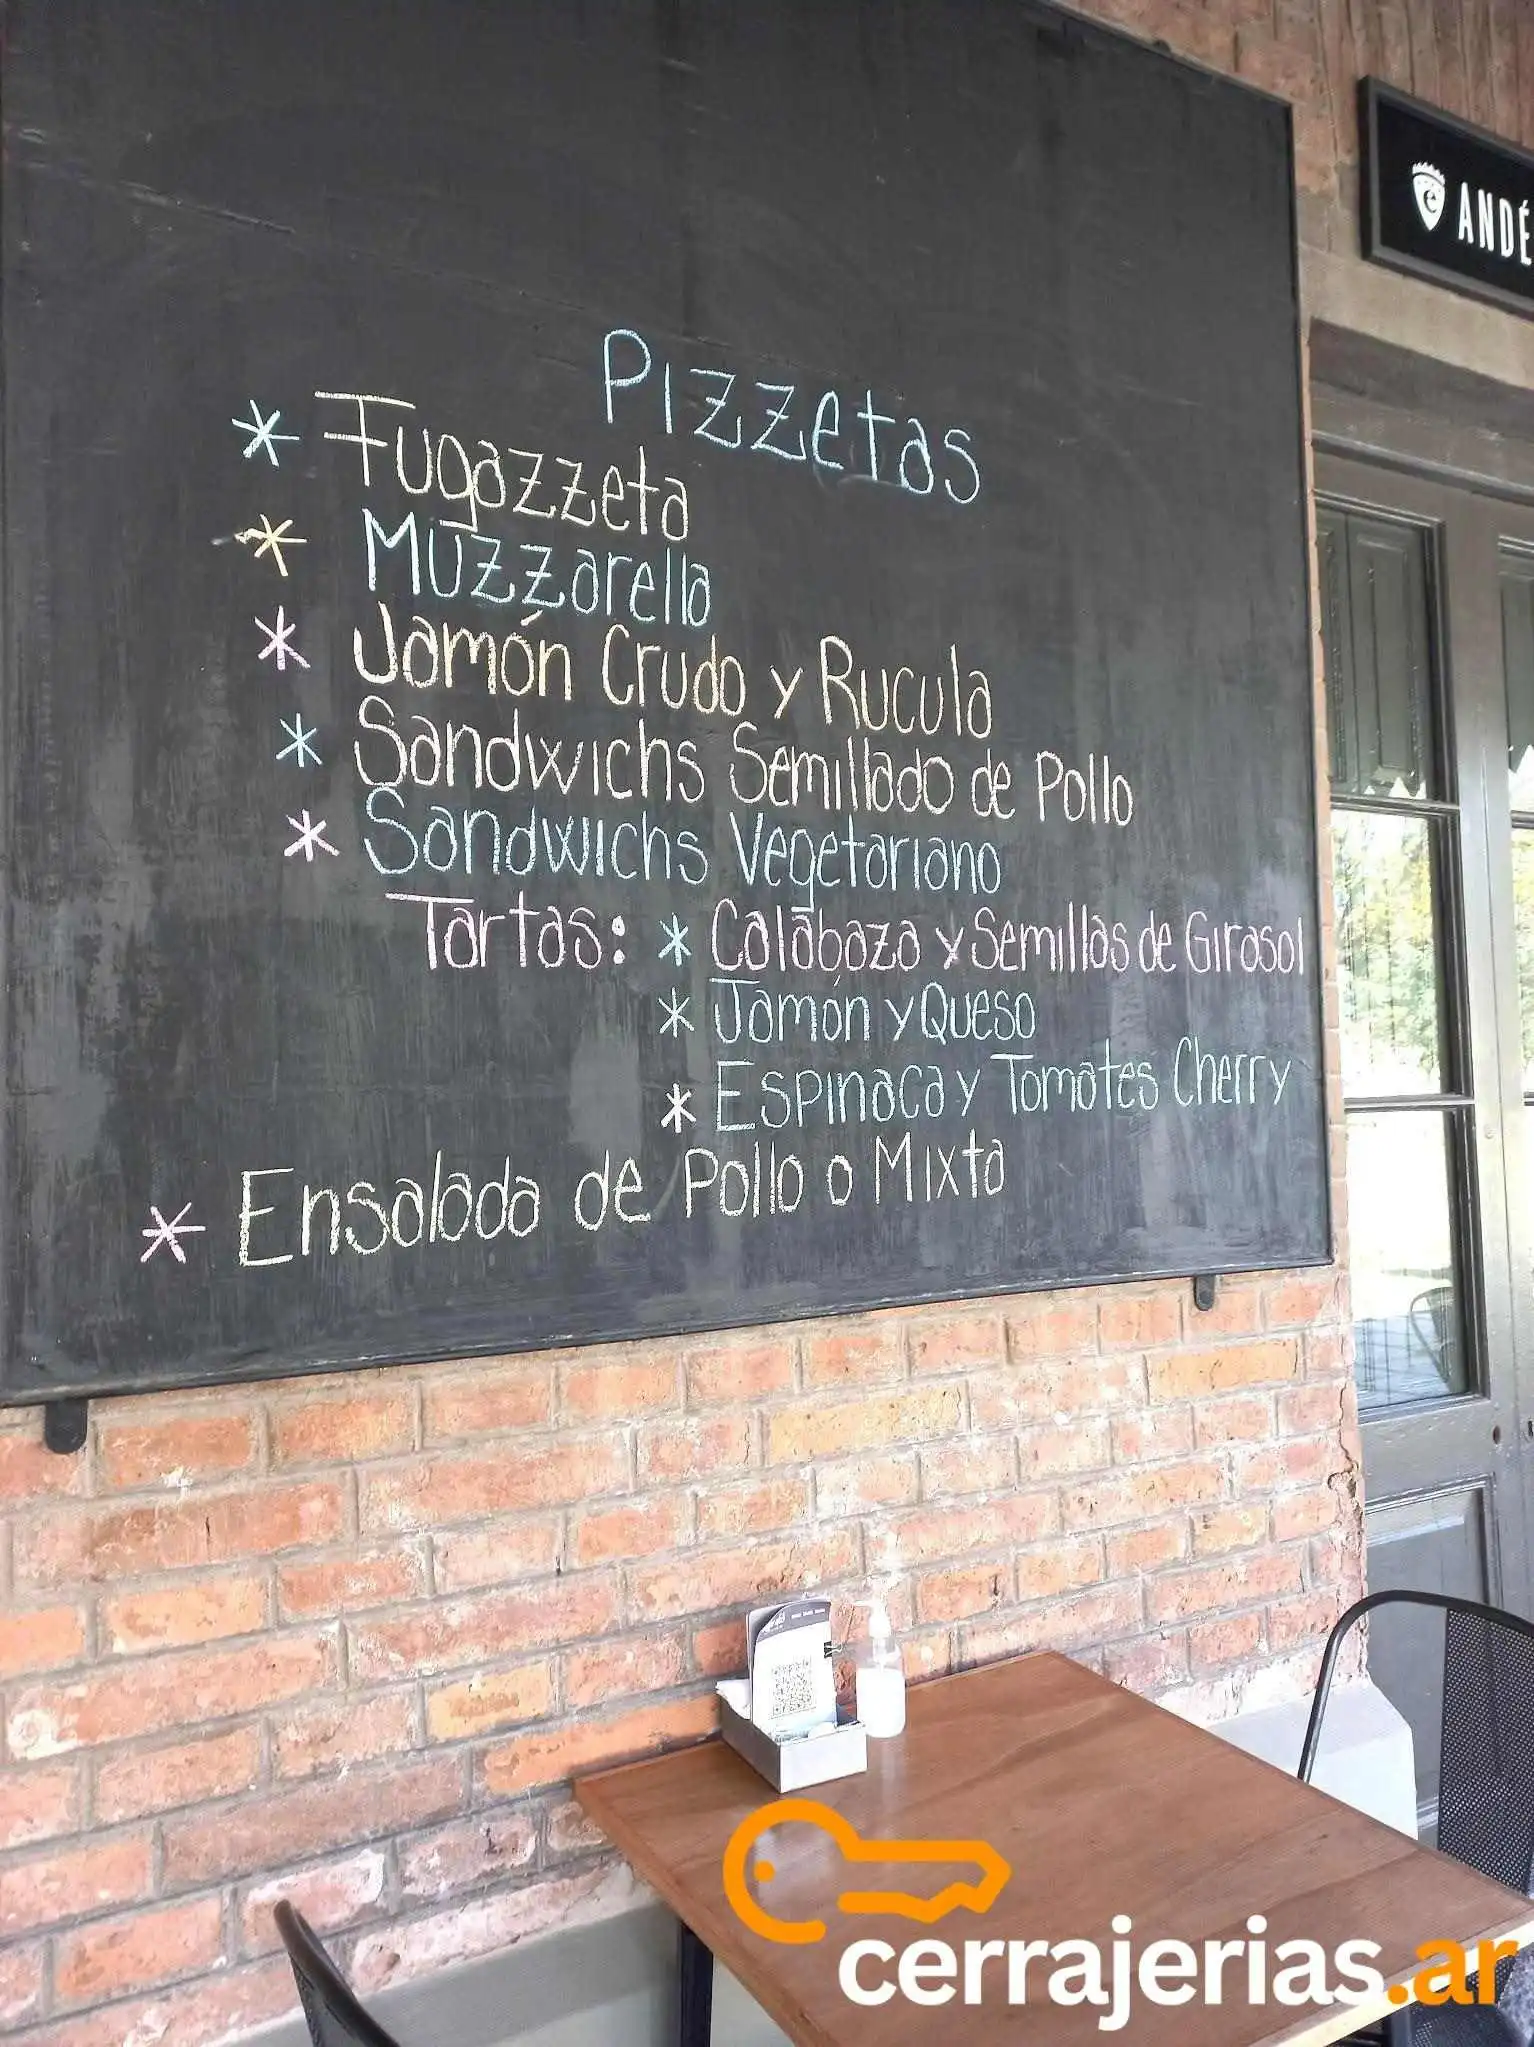 ANDÉ
Pizzetas
* Fugazzeta
* Muzzarella
* Jamón Crudo y Rucula
* Sandwichs Semillado de Pollo
* Sandwichs Vegetariano
Tartas: * Calabaza y Semillas de Girasol
* Jamón y Queso
* Espinaca y Tomates Cherry
* Ensalada de Pollo o Mixta
cerrajerias.ar